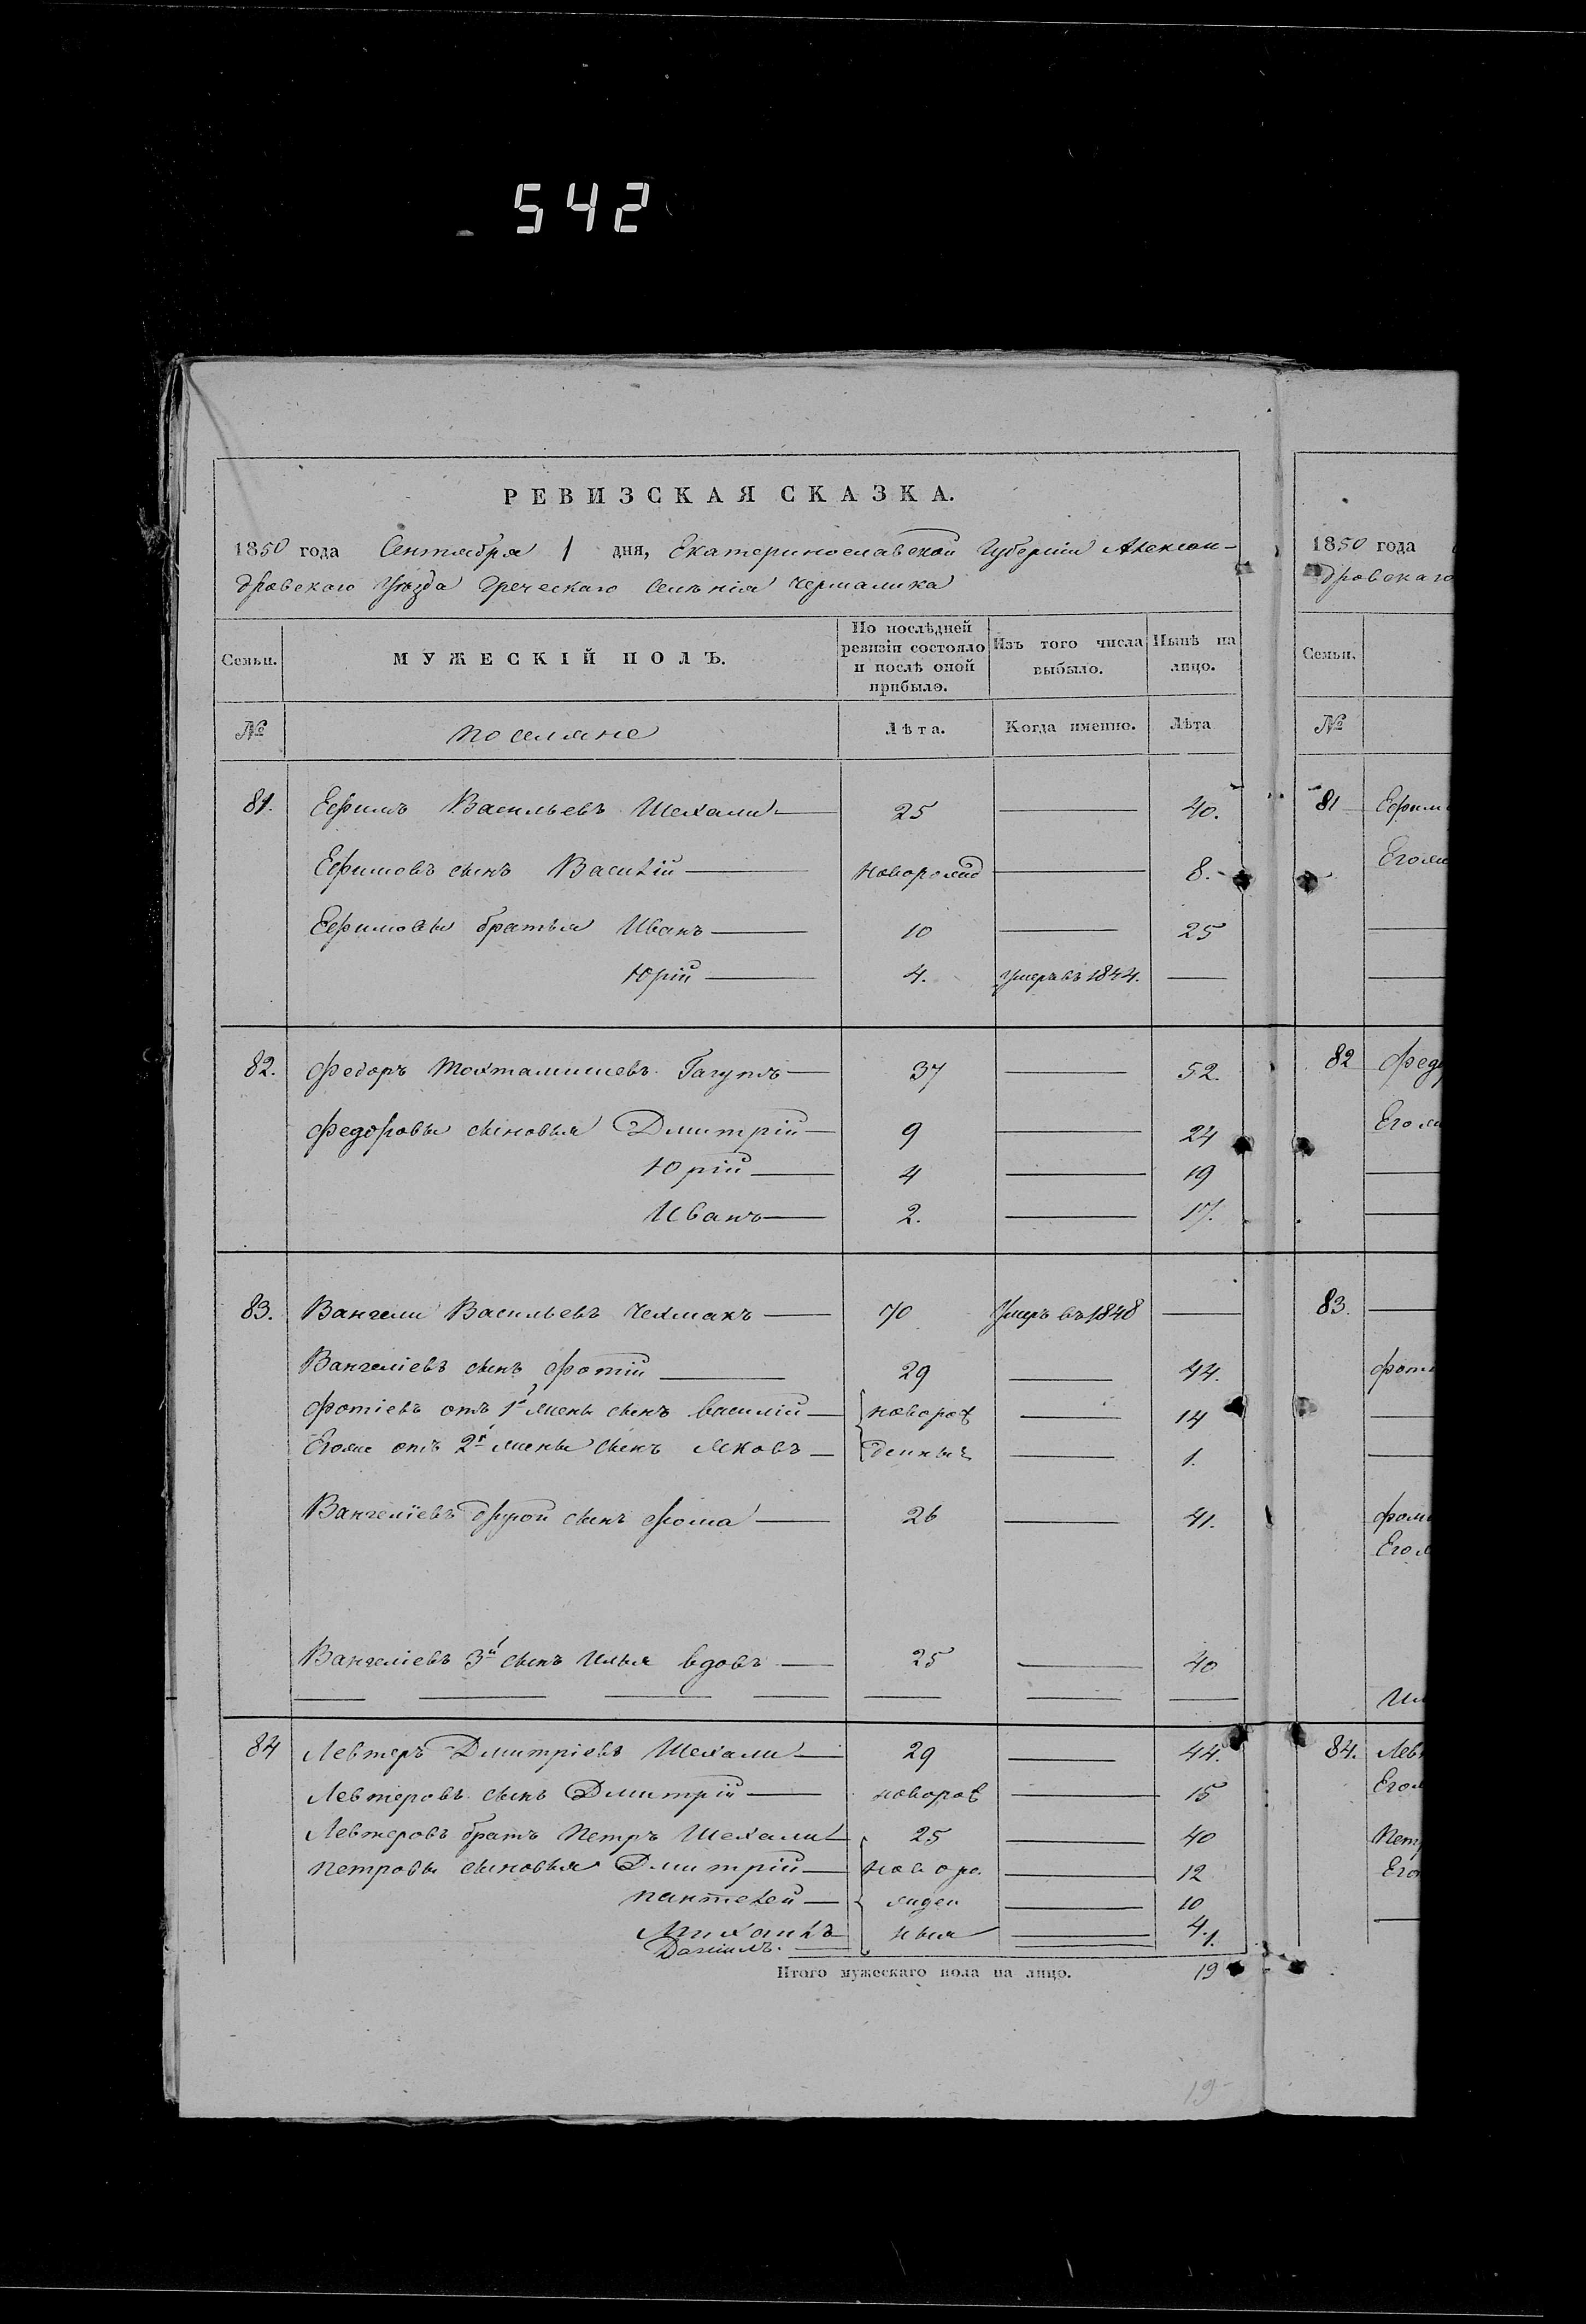 542
РЕВИЗСКАЯ СКАЗКА.
1850 года Сентября 1 дня, Екатеринославской Губерніи Алексан-
дровскаго Уѣзда Греческаго Селенія Чермалика
Семьи.
МУЖЕСКІЙ ПОЛЪ.
По послѣдней ревизіи состояло и послѣ оной прибыло.
Изъ того числа выбыло.
Нынѣ на лицо.
№ поселяне Лѣта. Когда именно. Лѣта
81. Ефимъ Васильевъ Шехали 25 40.
Ефимовъ сынъ Василій новорожд 8.
Ефимовы братья Иванъ 10 25
Юрій 4. Умеръ въ 1844.
82. Федоръ Тохтамишевъ 37 52.
Федоровы сыновья Дмитрій 9 24
Юрій 4 19
Иванъ 2. 17.
83. Вангели Васильевъ Чехмакъ 70 Умеръ въ 1848
Вангеліевъ сынъ Фотій 29 44.
Фотіевъ отъ 1й жены сынъ Василій новорож 14
Егоже отъ 2й жены сынъ Яковъ денные 1.
Вангеліевъ другой сынъ Фома 26 41.
Вангеліевъ 3й сынъ Илья вдовъ 25 40
84 Левтеръ Дмитріевъ Шехали 29 44.
Левтеровъ сынъ Дмитрій новорож 15
Левтеровъ братъ Петръ Шехали 25 40
Петровы сыновья Дмитрій новоро 12
Пантелей жден 10
Михаилъ ныя 4.
Даніилъ. 1.
Итого мужескаго пола на лицо. 19
19
1850 года
дровскаго
Семьи.
№
81 Ефим
Егоже
82 Фед
Егоже
83.
Фоті
Фом
Егож
Ил
84. Лев
Егож
Петр
Его